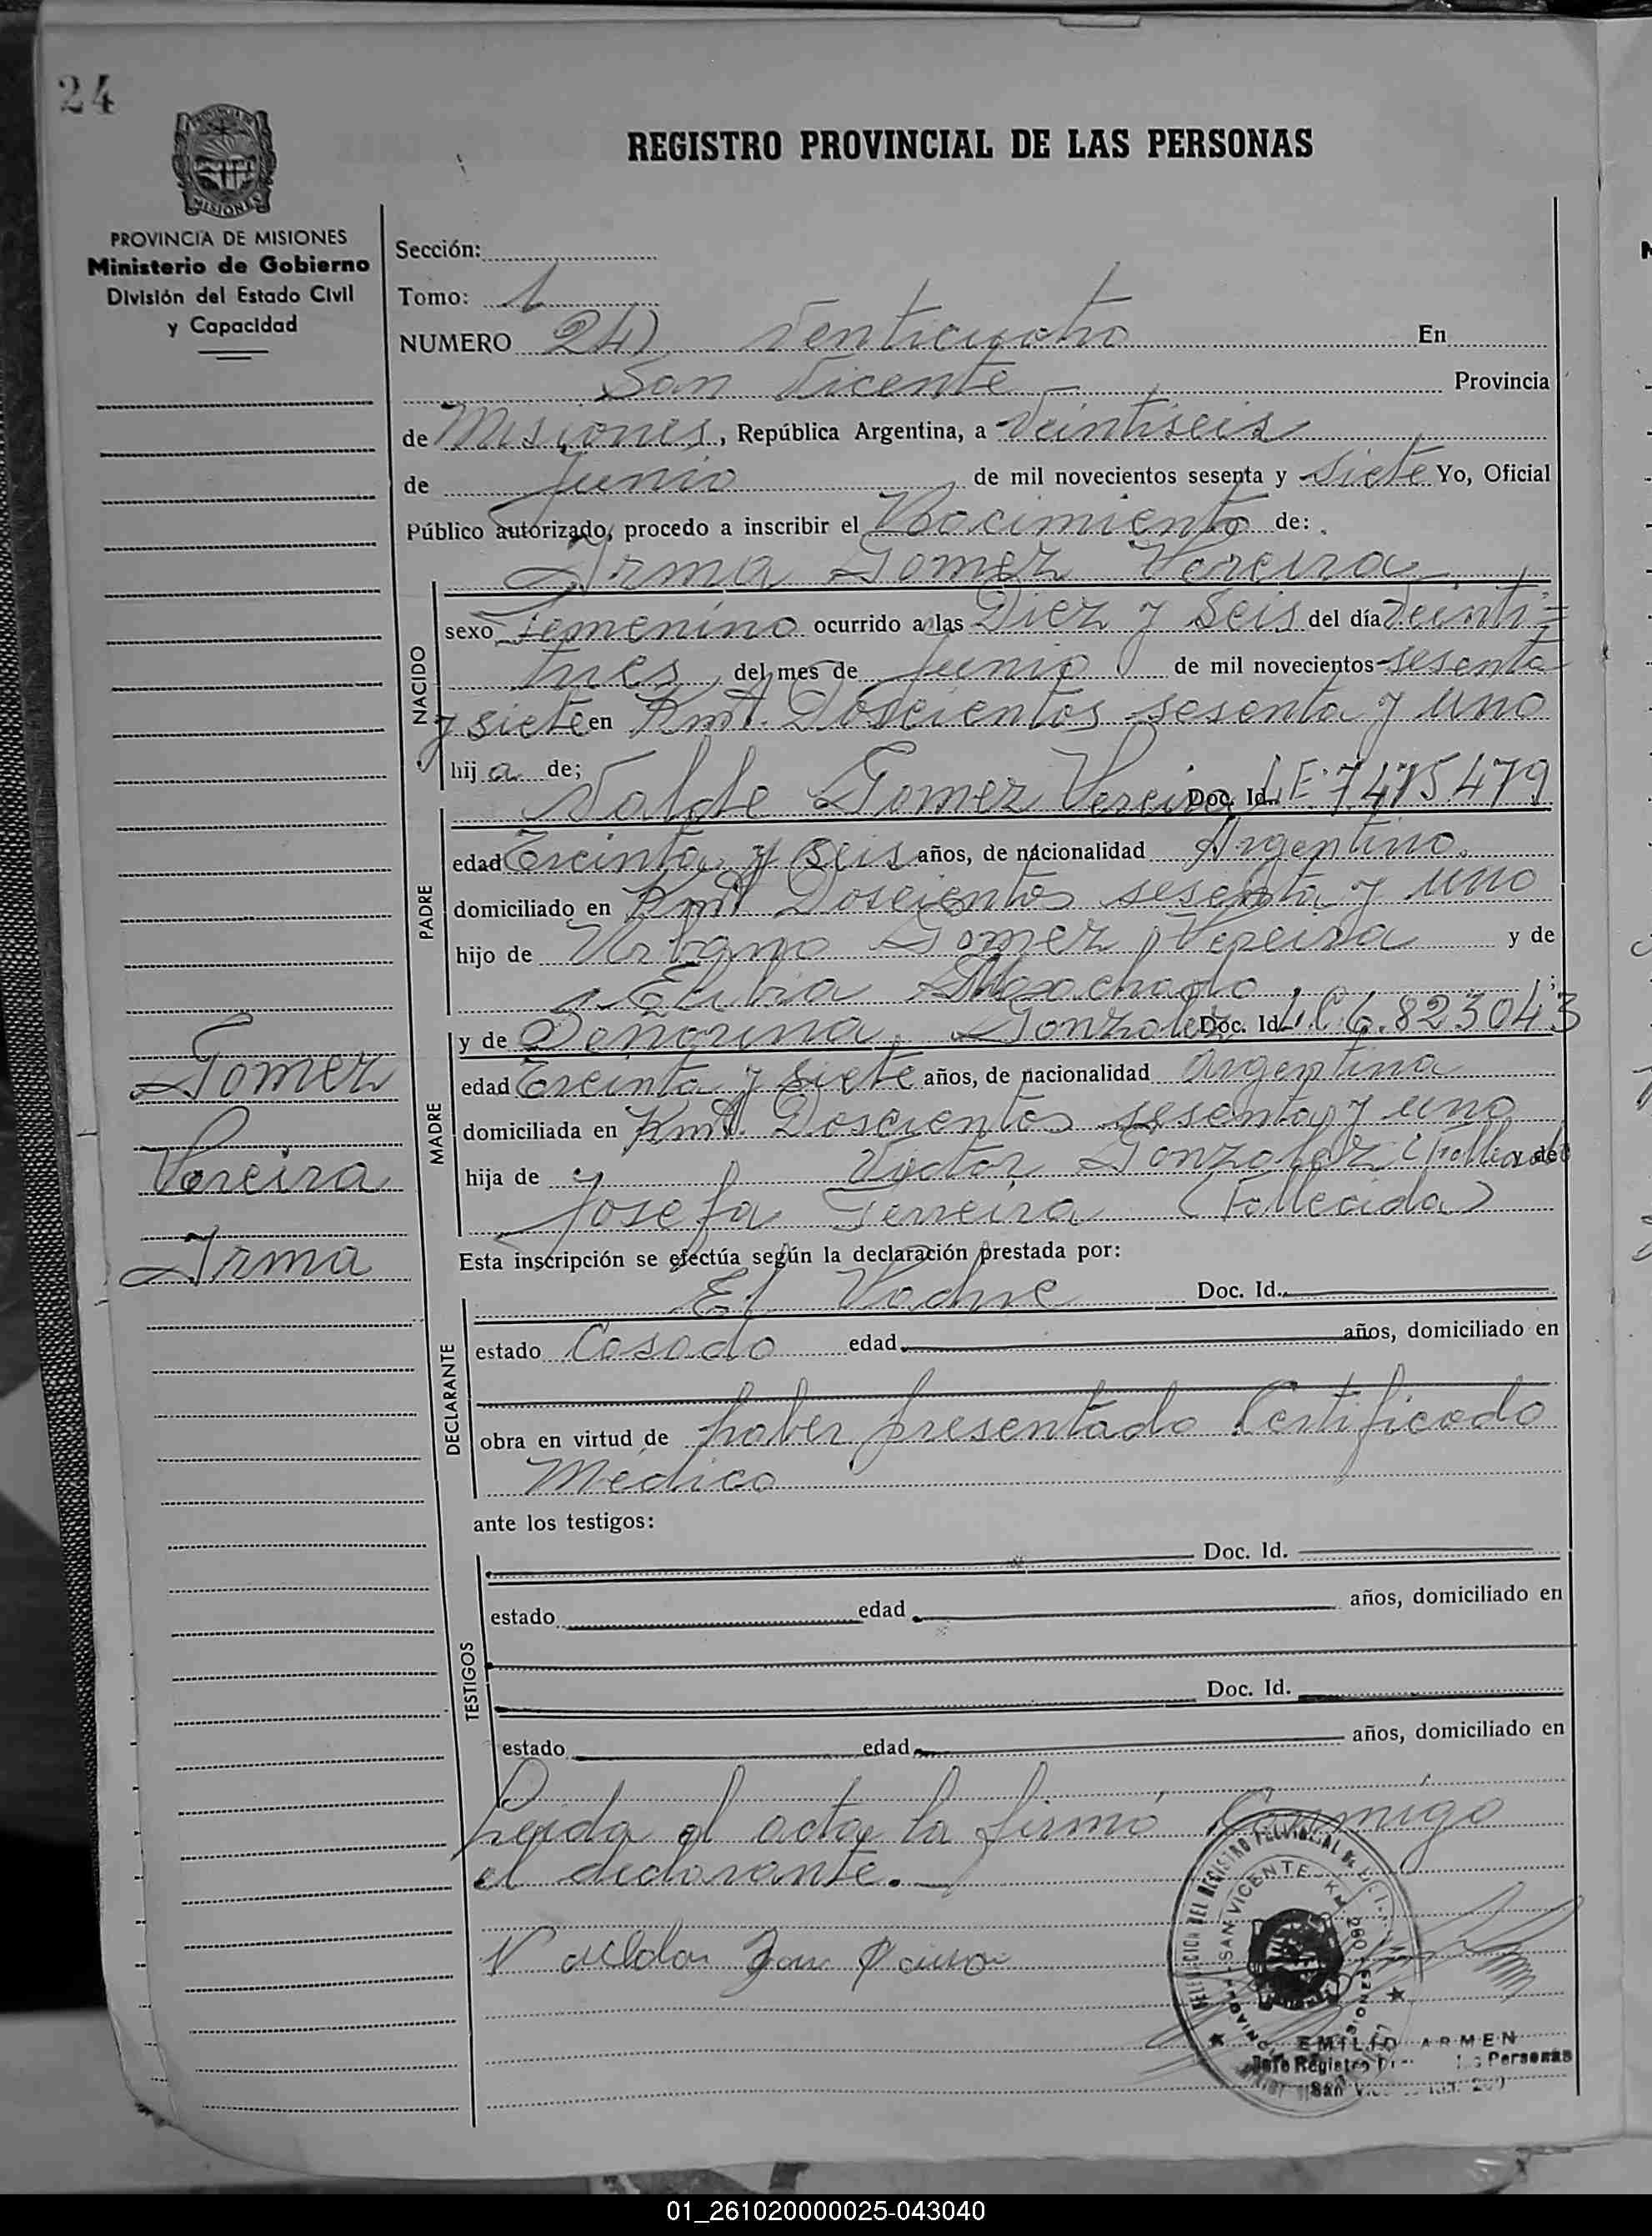 24
REGISTRO PROVINCIAL DE LAS PERSONAS
MISIONES
PROVINCIA DE MISIONES
Ministerio de Gobierno
División del Estado Civil
y Capacidad
Sección:
Tomo: 1
NUMERO 24) Venticuatro En
San Vicente Provincia
de Misiones, República Argentina, a Veintiseis
de Junio de mil novecientos sesenta y Siete Yo, Oficial
Público autorizado, procedo a inscribir el Nacimiento de:
Irma Gomez Pereira
NACIDO
sexo Femenino ocurrido a las Diez y Seis del día Veinti=
tres del mes de Junio de mil novecientos sesenta
y siete en Kmt. Doscientos sesenta y uno
hija de;
PADRE
Valde Gomez Pereira Doc. Id. L.E. 7.475.479
edad Treinta y seis años, de nacionalidad Argentino.
domiciliado en Kmt Doscientos sesenta y uno
hijo de Urbano Gomez Pereira y de
Machado
MADRE
y de Gonzalez Doc. Id. L.C 6.823043
edad Treinta y siete años, de nacionalidad Argentina
domiciliada en Kmt. Doscientos sesenta y uno
hija de Victor Gonzalez (Fallecido) y de
Josefa Ferreira (Fallecida)
Gomez
Pereira
Irma
Esta inscripción se efectúa según la declaración prestada por:
DECLARANTE
El Padre Doc. Id.
estado Casado edad años, domiciliado en
obra en virtud de haber presentado Certificado
Medico
ante los testigos:
TESTIGOS
Doc. Id.
estado edad años, domiciliado en
Doc. Id.
estado edad años, domiciliado en
Leida el acta la firmó Conmigo
el declarante.
DEL REGISTRO PROVINCIAL DE
SAN VICENTE
EMILIO ARMEN
Jefe Registro Personas
San
01_261020000025-043040